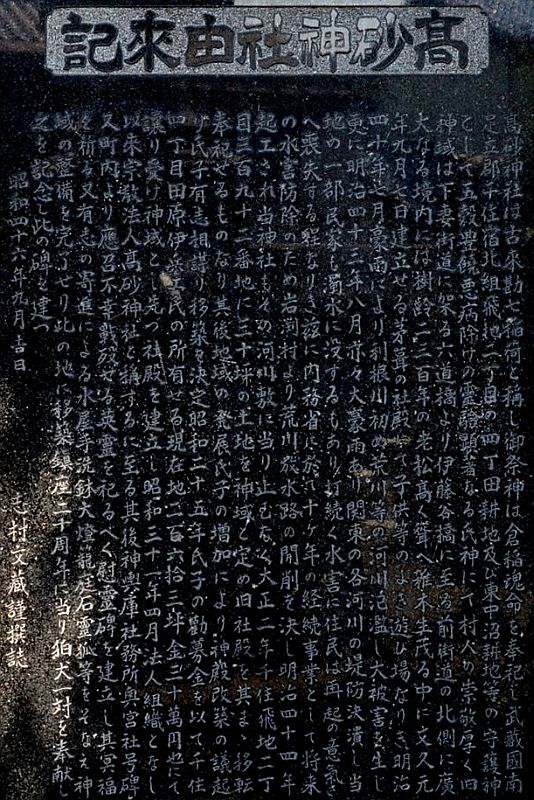 高砂神社由來記
高砂神社は古來勘七稲荷と稱し御祭神は倉稲魂命を奉祀し武蔵國南
足立郡千住宿北組飛地二丁目の四丁田耕地及び東中沼耕地等の守護神
として五穀豊饒悪病除けの霊驗顕著なる氏神にて村人の崇敬厚く旧
神域は下妻街道に架る六道橋より伊藤谷橋に至る前街道の北側に廣
大なる境内には樹齢二三百年の老松高く聳へ椎木生茂る中に文久元
年九月七日建立せる茅葺の社殿にて子供等のよき遊び場なりき明治
四十年七月豪雨により利根川初め荒川等の河川氾濫し大被害を生し
更に明治四十三年八月亦々大豪雨あり関東の各河川の堤防決潰し当
地の一部民家も濁水に没するもあり打続く水害に住民は再起の意気さ
へ喪失する程なりき茲に内務省に於て十ヶ年の経続事業として将来
の水害防除のため岩渕村より荒川放水路の開削を決し明治四十四年
起工され当神社もその河川敷に当り止むなく大正二年千住飛地二丁
目三百九十二番地に三十坪の土地を神域と定め旧社殿を其まゝ移転
奉祀せるものなり其後地域の発展氏子の増加により神殿改築の議起
り氏子有志相謀り移築を決定昭和二十五年氏子の勸募金を以て千住
四丁目田原伊 氏の所有せる現在地二百六拾三坪金三十萬円也にて
譲り受け神域とし先づ社殿を建立し昭和三十一年四月法人組織となし
以來宗教法人高砂神社と稱するに至る其後神輿庫社務所奥宮社号碑
又町内より應召不幸戦歿せる英霊を祀るべく慰霊碑を建立し其冥福
を祈る又有志の寄進による水屋手洗鉢大燈籠庭石霊狐等をそなえ神
域の整備を完了せり此の地に移築鎮座二十周年に当り狛犬一対を奉献し
之を記念し此の碑を建つ
昭和四十六年九月吉日
志村文蔵謹撰誌